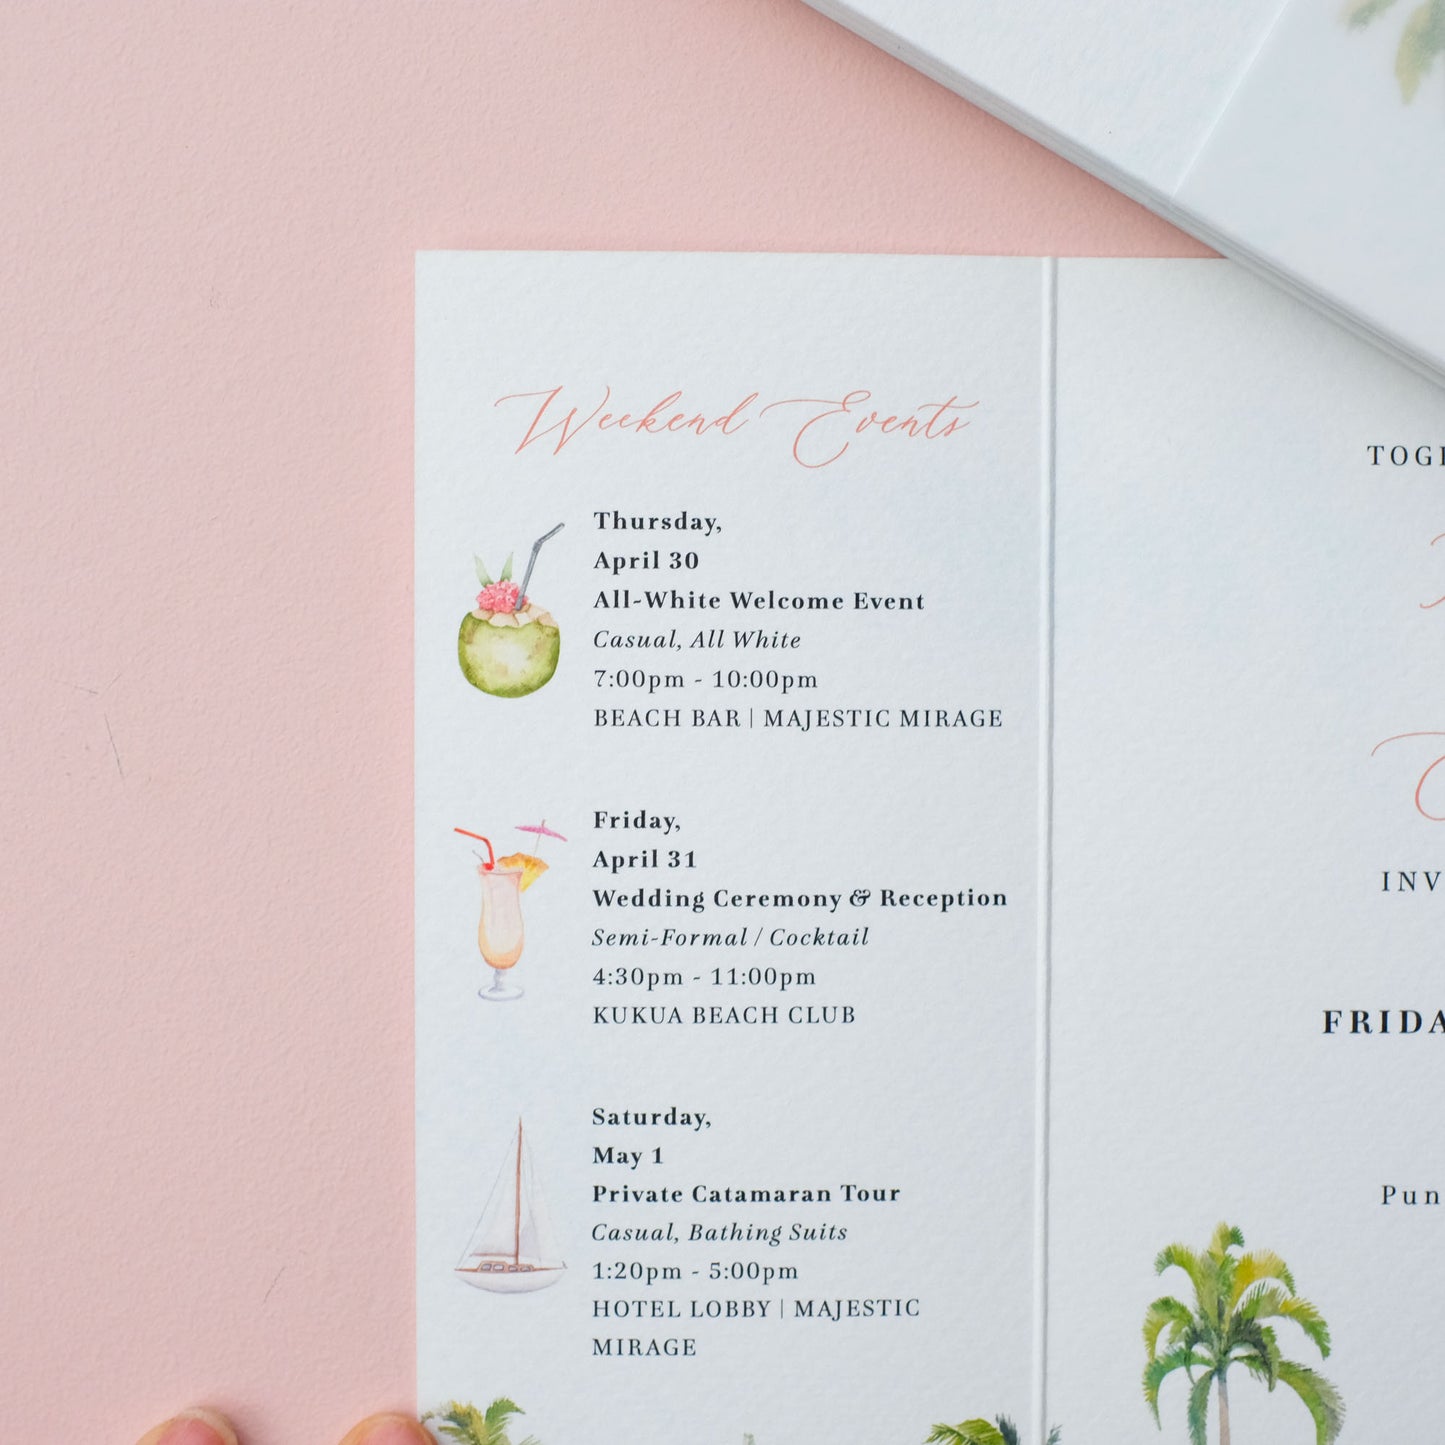 Weekend Events
Thursday,
April 30
All-White Welcome Event
Casual, All White
7:00pm - 10:00pm
BEACH BAR | MAJESTIC MIRAGE
Friday,
April 31
Wedding Ceremony & Reception
Semi-Formal / Cocktail
4:30pm - 11:00pm
KUKUA BEACH CLUB
Saturday,
May 1
Private Catamaran Tour
Casual, Bathing Suits
1:20pm - 5:00pm
HOTEL LOBBY | MAJESTIC
MIRAGE
TOGE
INV
FRIDA
Pun